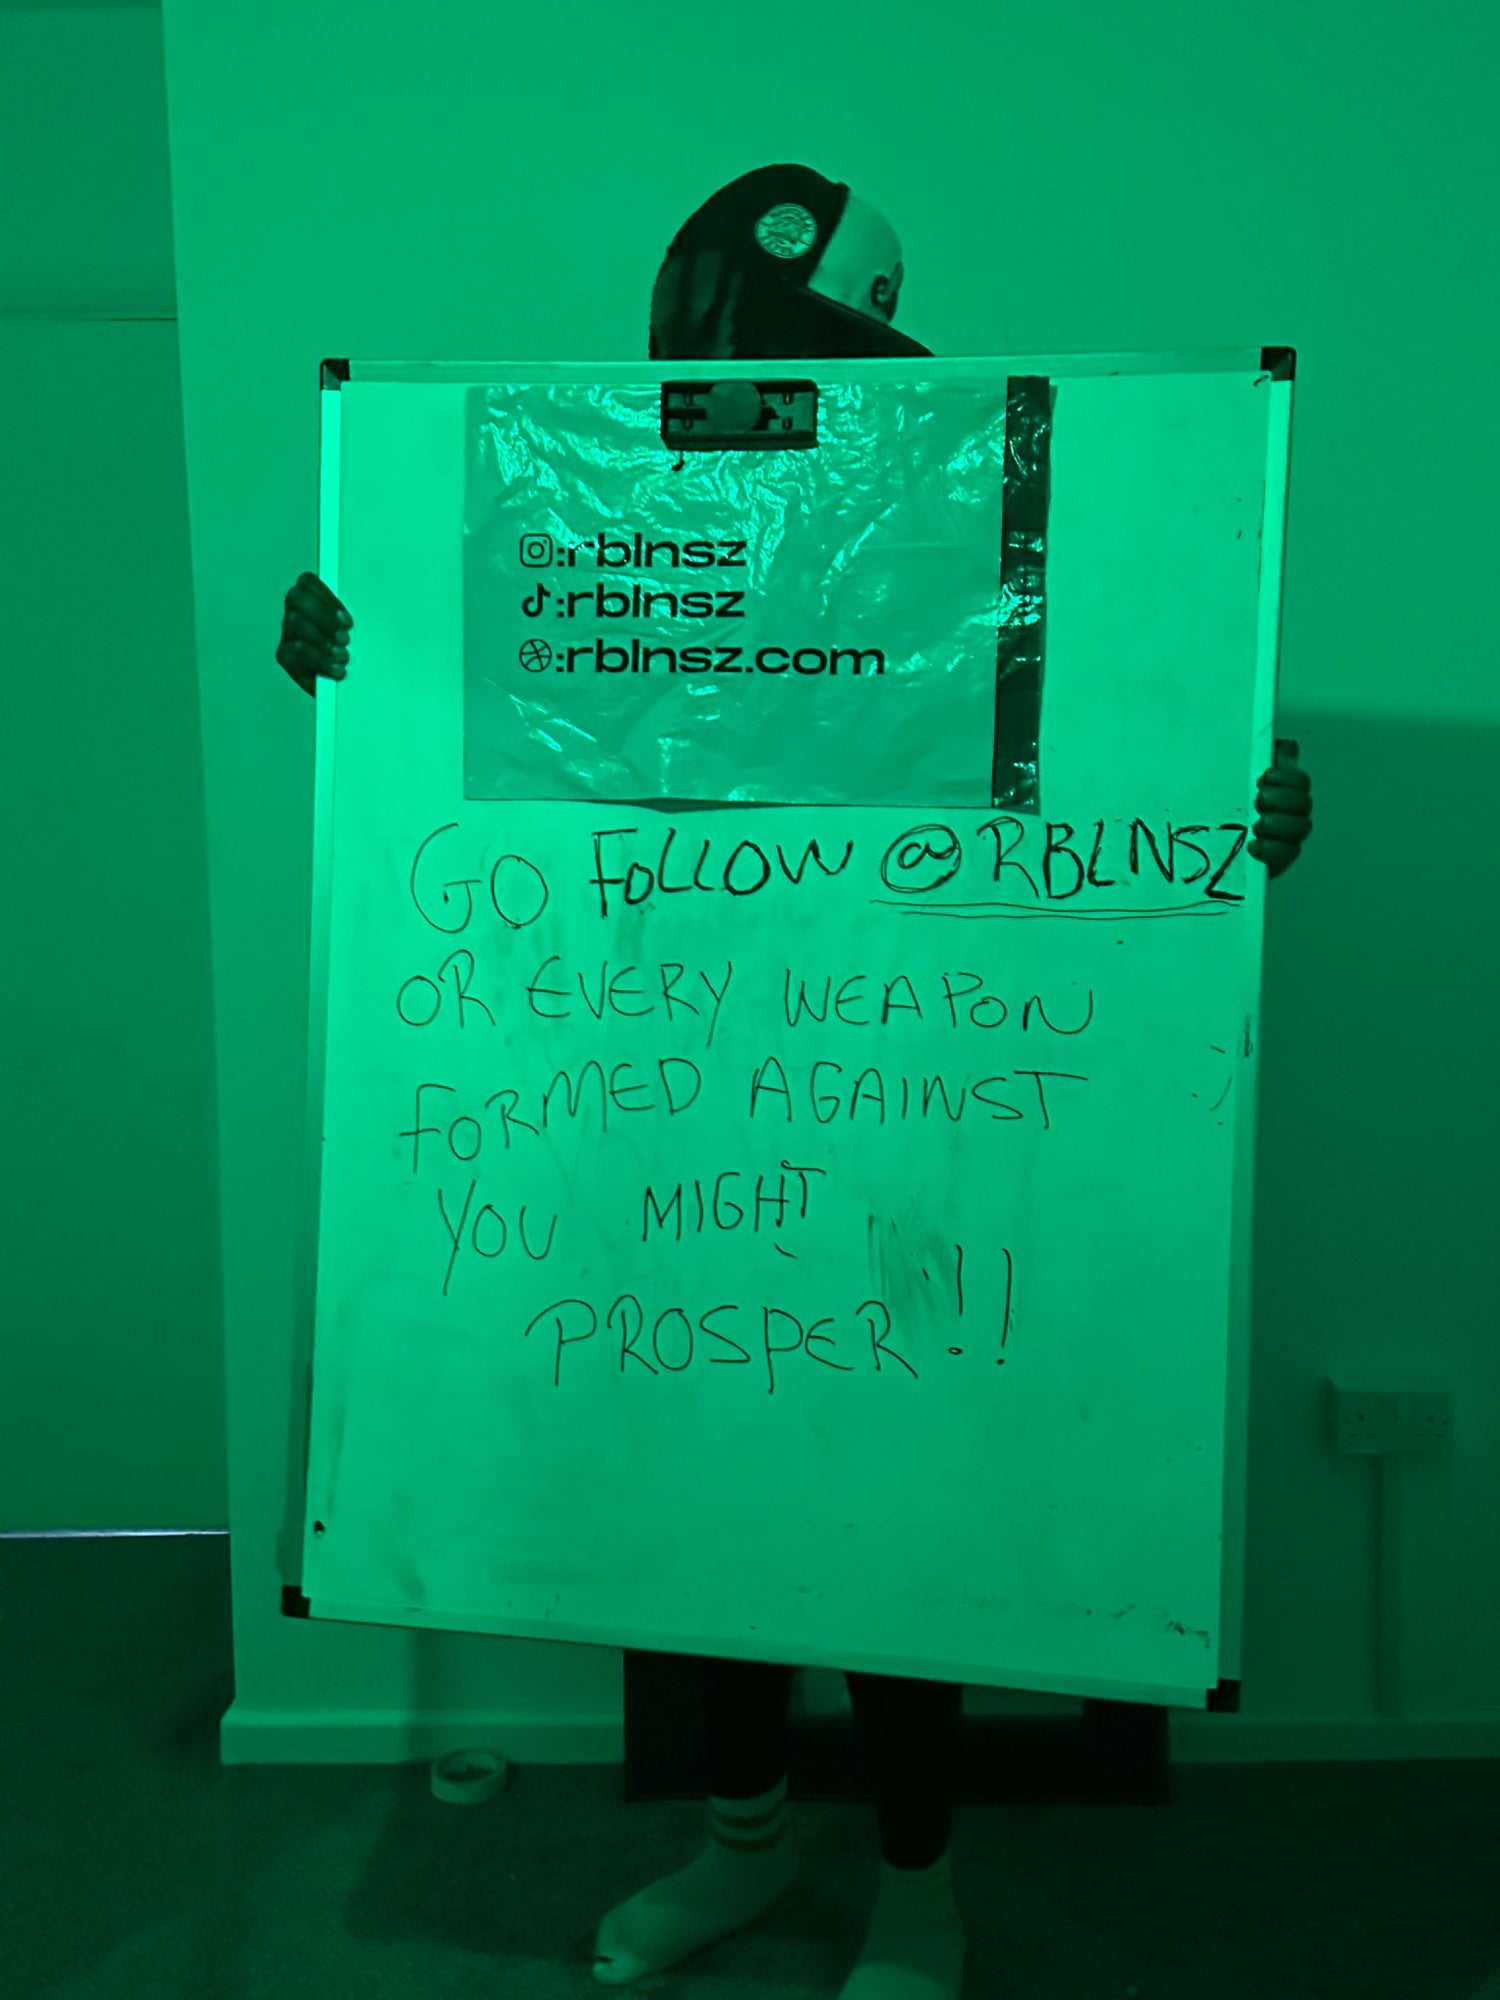 :rblnsz
:rblnsz
:rblnsz.com
GO FOLLOW @RBLNSZ
OR EVERY WEAPON
FORMED AGAINST
YOU MIGHT
PROSPER!!